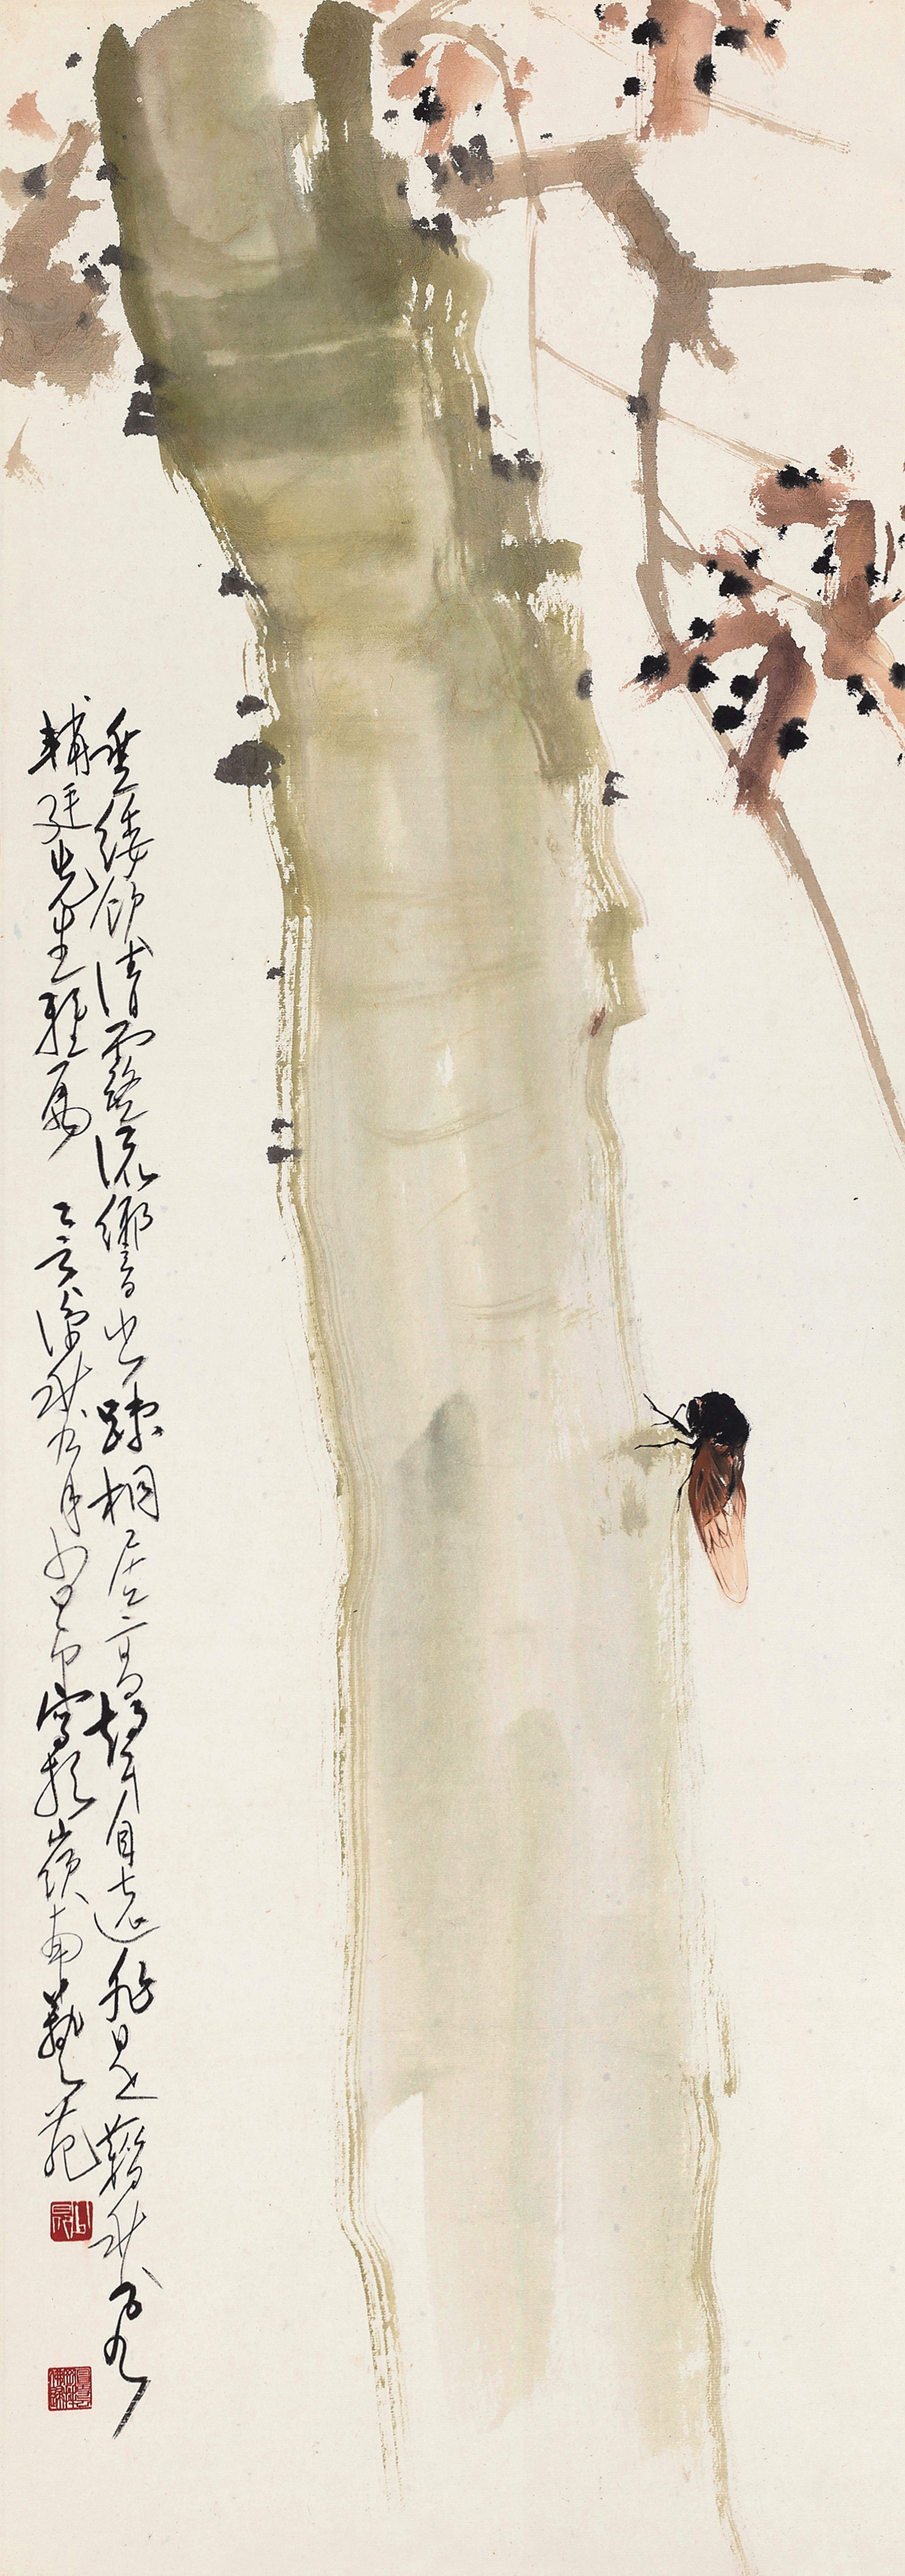 垂緌飲清露流響出疎桐居高聲自遠非是藉秋風
輔廷先生雅屬 乙亥深秋九月少昂寫於嶺南藝苑